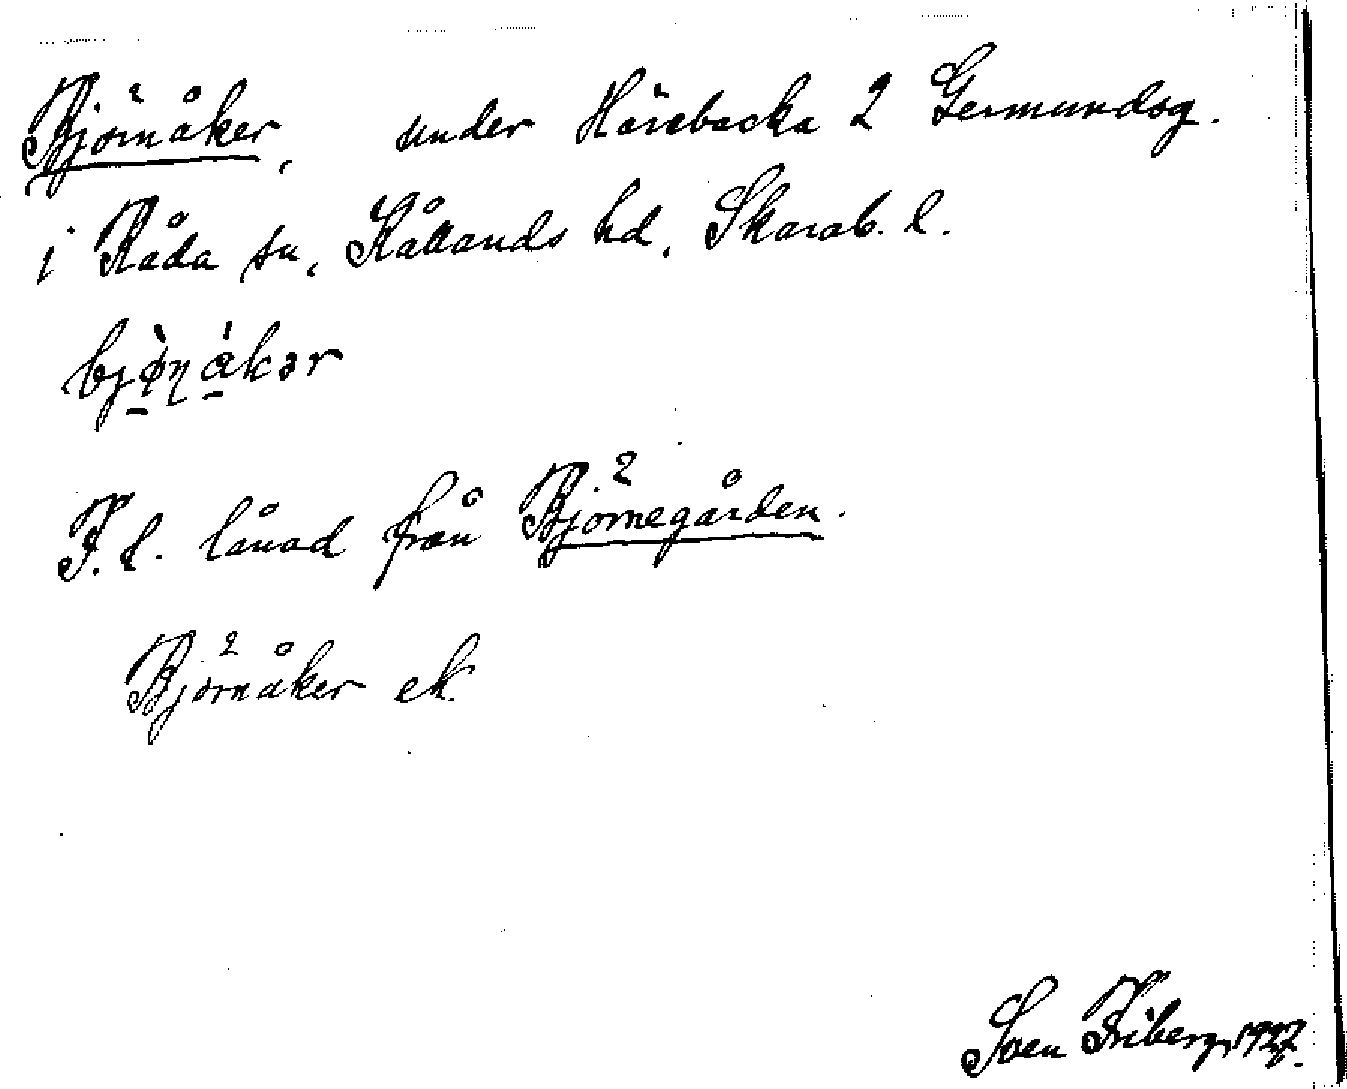 Björnåker, under Härebacka 2 Germundsg.
i Råda sn, Kållands hd, Skarab. l.
bjø̀ṇákər
F. l. lånad från Björnegården.
Björnåker ek.
Sven Friberg, 1927.